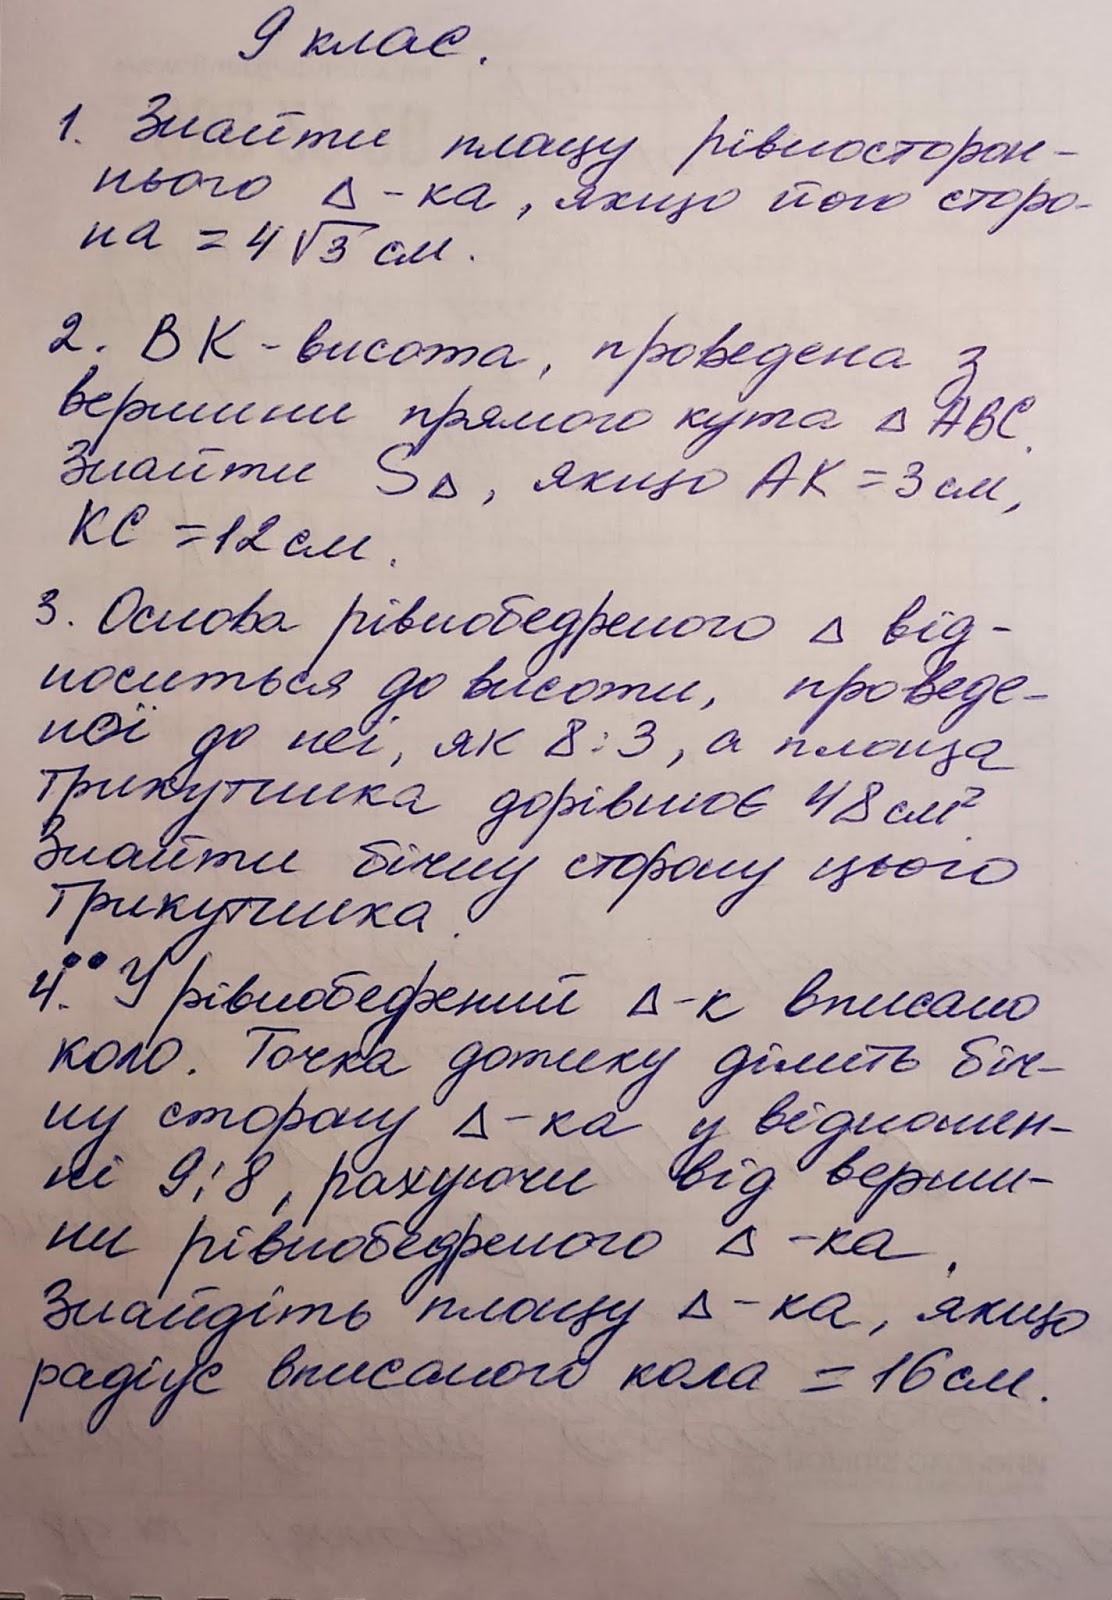 9 клас.
1. Знайти площу рівносторон-
нього △-ка, якщо його сторо-
на = 4√3 см.
2. ВК - висота, проведена з
вершини прямого кута △ АВС.
Знайти S△, якщо АК = 3 см,
КС = 12 см.
3. Основа рівнобедреного △ від-
носиться до висоти, проведе-
ної до неї, як 8:3, а площа
трикутника дорівнює 48 см².
Знайти бічну сторону цього
трикутника.
4.•• У рівнобедрений △-к вписано
коло. Точка дотику ділить біч-
ну сторону △-ка у відношен-
ні 9:8, рахуючи від верши-
ни рівнобедреного △-ка.
Знайдіть площу △-ка, якщо
радіус вписаного кола = 16 см.